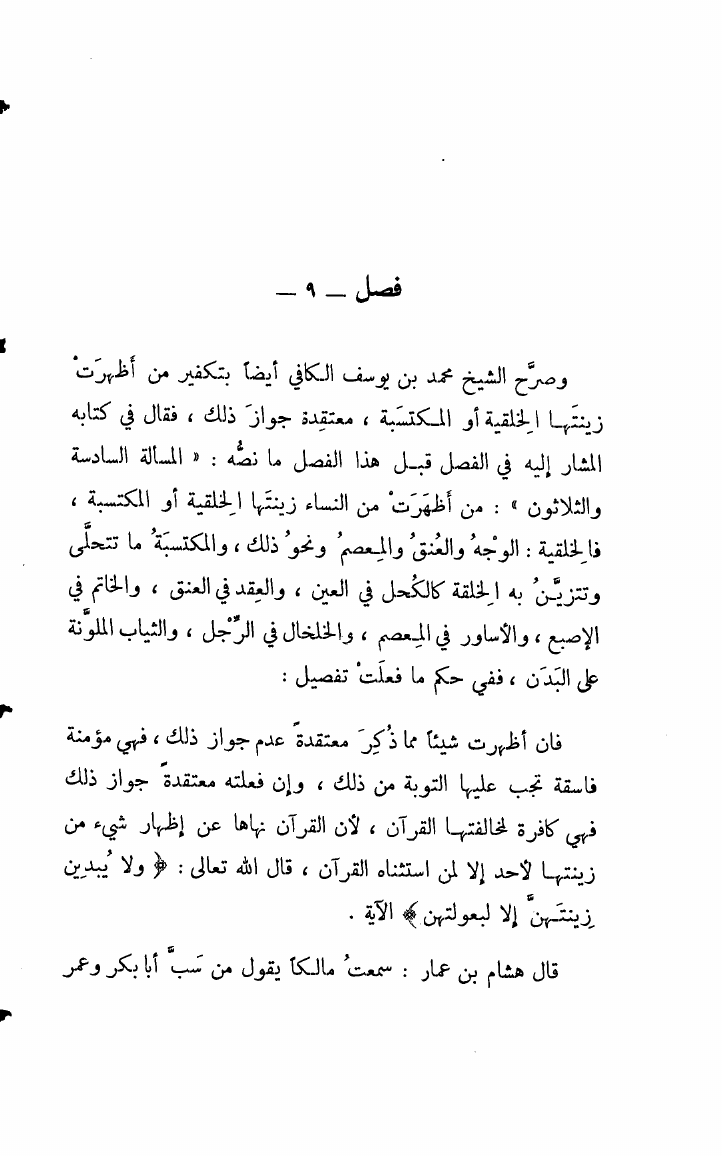 فصل — ٩ —
وصرَّح الشيخ محمد بن يوسف الكافي أيضاً بتكفير من أَظهرَتْ
زينتَها الخِلقية أو المكتسَبة ، معتقِدة جوازَ ذلك ، فقال في كتابه
المشار إليه في الفصل قبل هذا الفصل ما نصُّه : « المسألة السادسة
والثلاثون » : من أَظهَرَتْ من النساء زينتَها الخِلقية أو المكتسبة ،
فالخِلقية : الوجْهُ والعُنقُ والمِعصمُ ونحوُ ذلك ، والمكتسبَةُ ما تتحلَّى
وتتزيَّنُ به الخِلقة كالكُحل في العين ، والعِقد في العنق ، والخاتم في
الإصبع ، والأساور في المِعصم ، والخلخال في الرِّجْل ، والثياب الملوَّنة
على البَدَن ، ففي حكم ما فعلَتْ تفصيل :
فان أظهرت شيئاً مما ذُكِرَ معتقدةً عدم جواز ذلك ، فهي مؤمنة
فاسقة تجب عليها التوبة من ذلك ، وإن فعلته معتقدةً جواز ذلك
فهي كافرة لمخالفتها القرآن ، لأن القرآن نهاها عن إظهار شيء من
زينتها لأحد إلا لمن استثناه القرآن ، قال الله تعالى : ﴿ ولا يُبدِين
زِينتَهنَّ إلا لبعولتهن ﴾ الآية .
قال هشام بن عمار : سمعتُ مالكاً يقول من سَبَّ أبا بكر وعمر